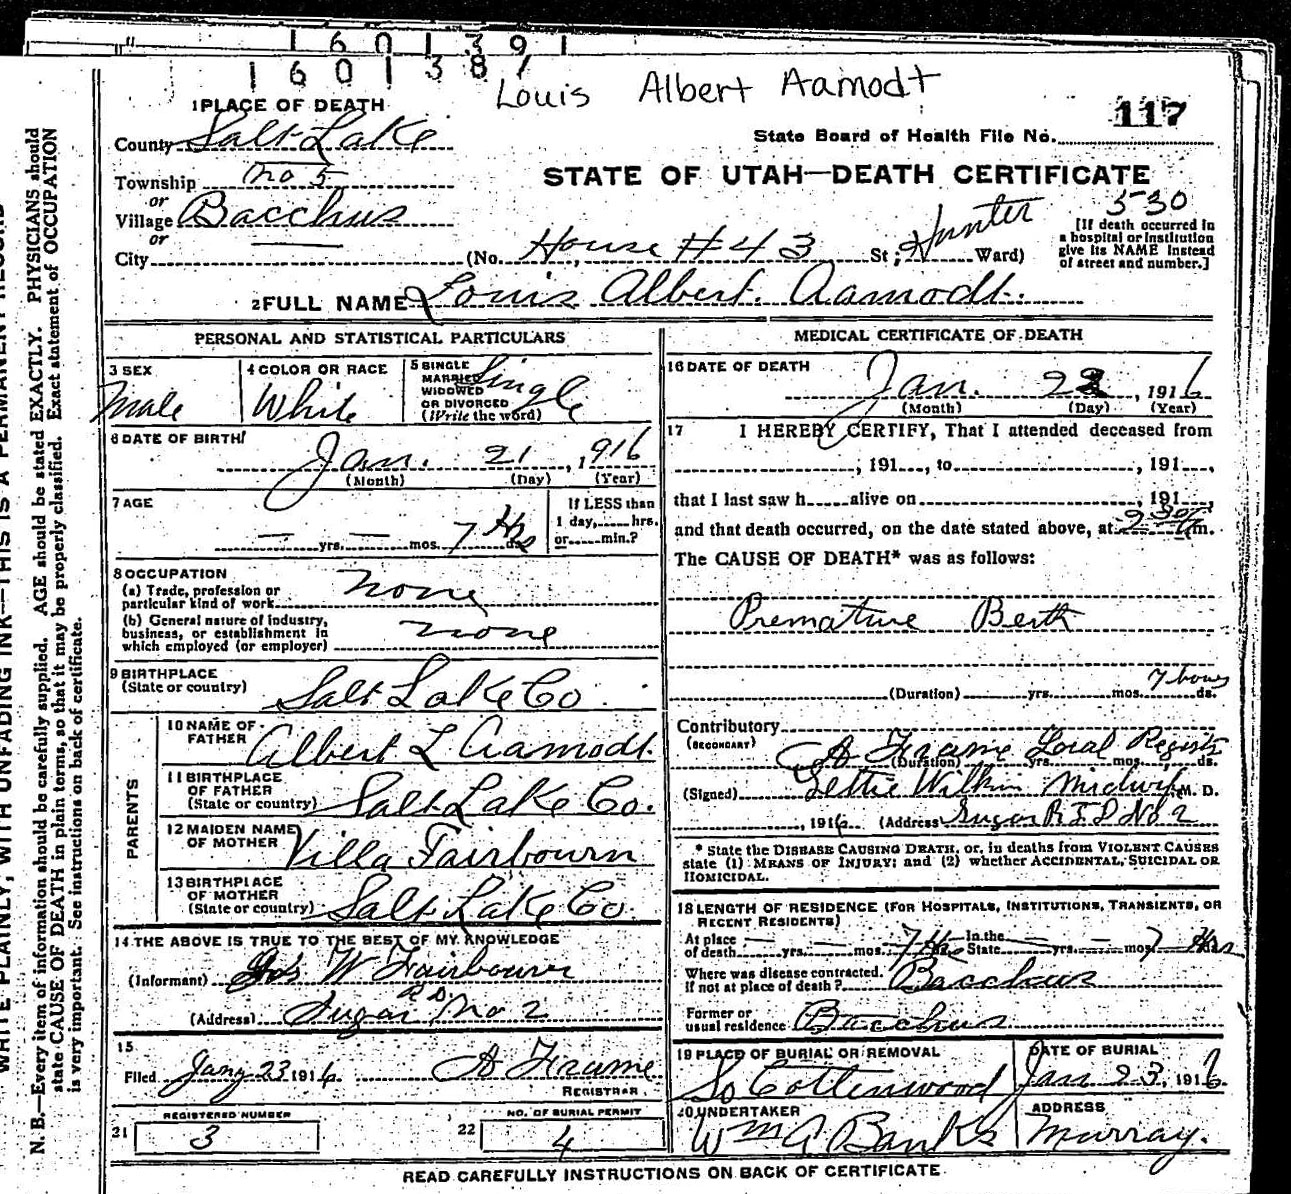 1 6 0 1 3 9 1
1 6 0 1 3 8 1
Louis Albert Aamodt
1 PLACE OF DEATH
117
County Salt Lake
State Board of Health File No.
Township No 5
STATE OF UTAH—DEATH CERTIFICATE
or
Village Bacchus
530
or
City (No. House #43 St; Hunter Ward)
[If death occurred in a hospital or institution give its NAME instead of street and number.]
2 FULL NAME Louis Albert Aamodt.
PERSONAL AND STATISTICAL PARTICULARS
3 SEX
Male
4 COLOR OR RACE
White
5 SINGLE
MARRIED
WIDOWED
OR DIVORCED
(Write the word)
Single
6 DATE OF BIRTH
Jan. 21, 1916
(Month) (Day) (Year)
7 AGE
— yrs. — mos. 7 Hrs ds.
If LESS than
1 day, hrs.
or min.?
8 OCCUPATION
(a) Trade, profession or
particular kind of work none
(b) General nature of industry,
business, or establishment in
which employed (or employer) none
9 BIRTHPLACE
(State or country) Salt Lake Co
PARENTS
10 NAME OF
FATHER Albert L Aamodt.
11 BIRTHPLACE
OF FATHER
(State or country) Salt Lake Co.
12 MAIDEN NAME
OF MOTHER Villa Fairbourn
13 BIRTHPLACE
OF MOTHER
(State or country) Salt Lake Co.
14 THE ABOVE IS TRUE TO THE BEST OF MY KNOWLEDGE
(Informant) Jos W Fairbourn
(Address) Sugar R D No 2
15
Filed Jany 23 1916 A Frame
REGISTRAR.
REGISTERED NUMBER
21 3
NO. OF BURIAL PERMIT
22 4
MEDICAL CERTIFICATE OF DEATH
16 DATE OF DEATH
Jan. 22, 1916
(Month) (Day) (Year)
17 I HEREBY CERTIFY, That I attended deceased from
, 191 , to , 191 ,
that I last saw h alive on , 191 ,
and that death occurred, on the date stated above, at 2 30 m.
The CAUSE OF DEATH* was as follows:
Premature Berth
(Duration) yrs. mos. 7 hours ds.
Contributory
(SECONDARY)
A Frame Local Registr
(Duration) yrs. mos. ds.
(Signed) Lettie Wilkin Midwife M. D.
, 1916 (Address Sugar R F D No 2
* State the DISEASE CAUSING DEATH, or, in deaths from VIOLENT CAUSES
state (1) MEANS OF INJURY; and (2) whether ACCIDENTAL, SUICIDAL OR
HOMICIDAL.
18 LENGTH OF RESIDENCE (FOR HOSPITALS, INSTITUTIONS, TRANSIENTS, OR
RECENT RESIDENTS)
At place of death — yrs. — mos. 7 Hrs In the State — yrs. — mos. 7 Hrs
Where was disease contracted.
if not at place of death? Bacchus
Former or
usual residence Bacchus
19 PLACE OF BURIAL OR REMOVAL
So Cottenwood
DATE OF BURIAL
Jan 23, 1916.
20 UNDERTAKER
Wm A Banks
ADDRESS
Murray.
READ CAREFULLY INSTRUCTIONS ON BACK OF CERTIFICATE
WRITE PLAINLY, WITH UNFADING INK—THIS IS A PERMANENT RECORD
N. B.—Every item of information should be carefully supplied. AGE should be stated EXACTLY. PHYSICIANS should
state CAUSE OF DEATH in plain terms, so that it may be properly classified. Exact statement of OCCUPATION
is very important. See instructions on back of certificate.